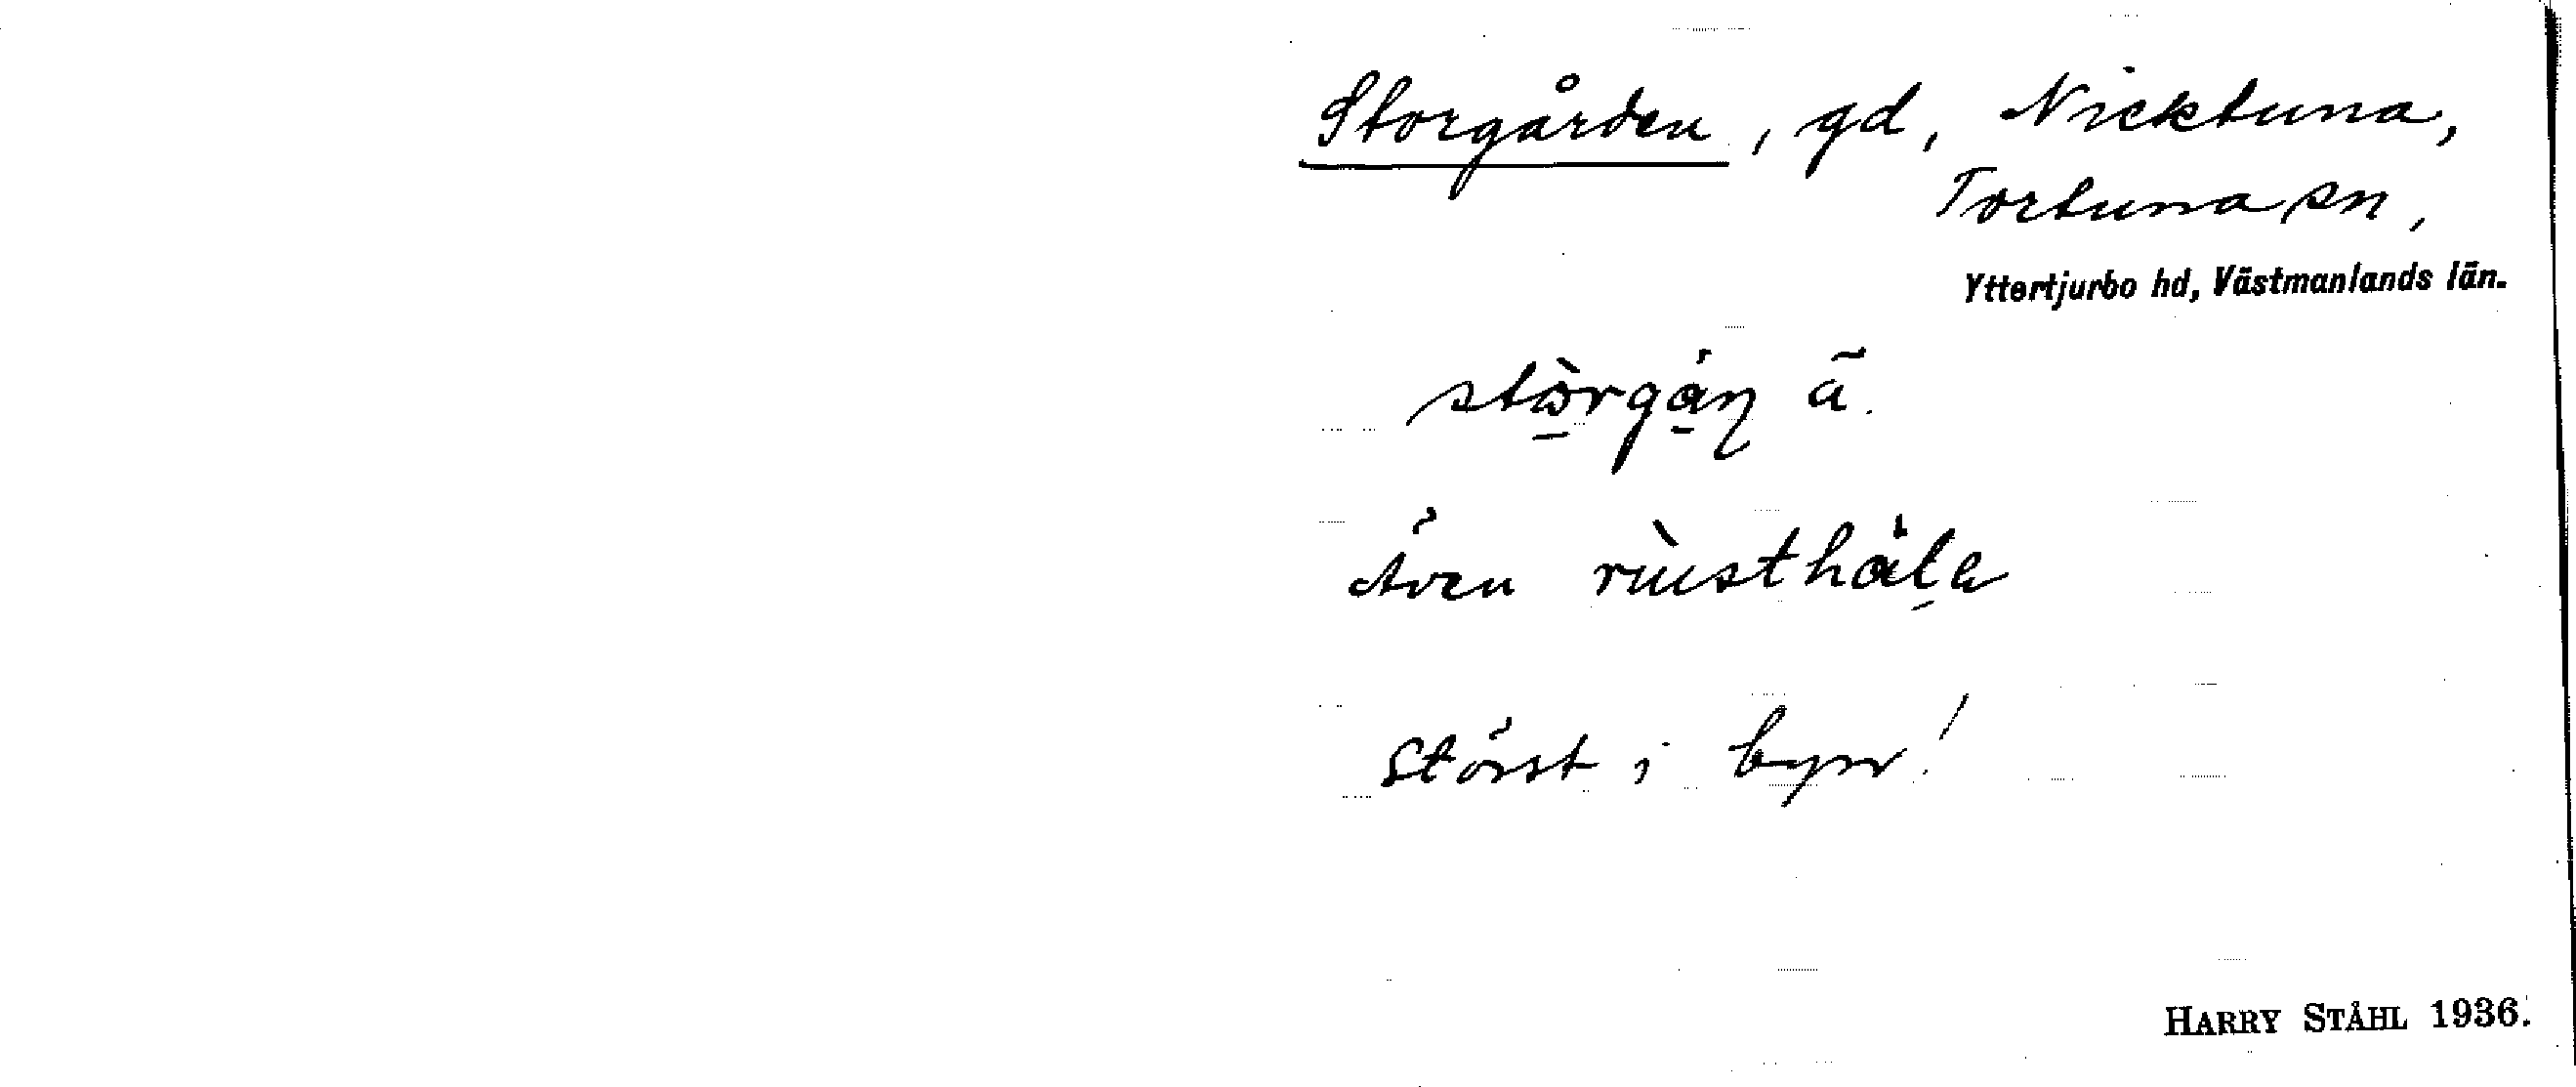 Storgården, gd, Nicktuna,
Tortuna sn,
Yttertjurbo hd, Västmanlands län.
stòrgán ā.
Även rùsthála
Störst i byn!
HARRY STÅHL 1936.